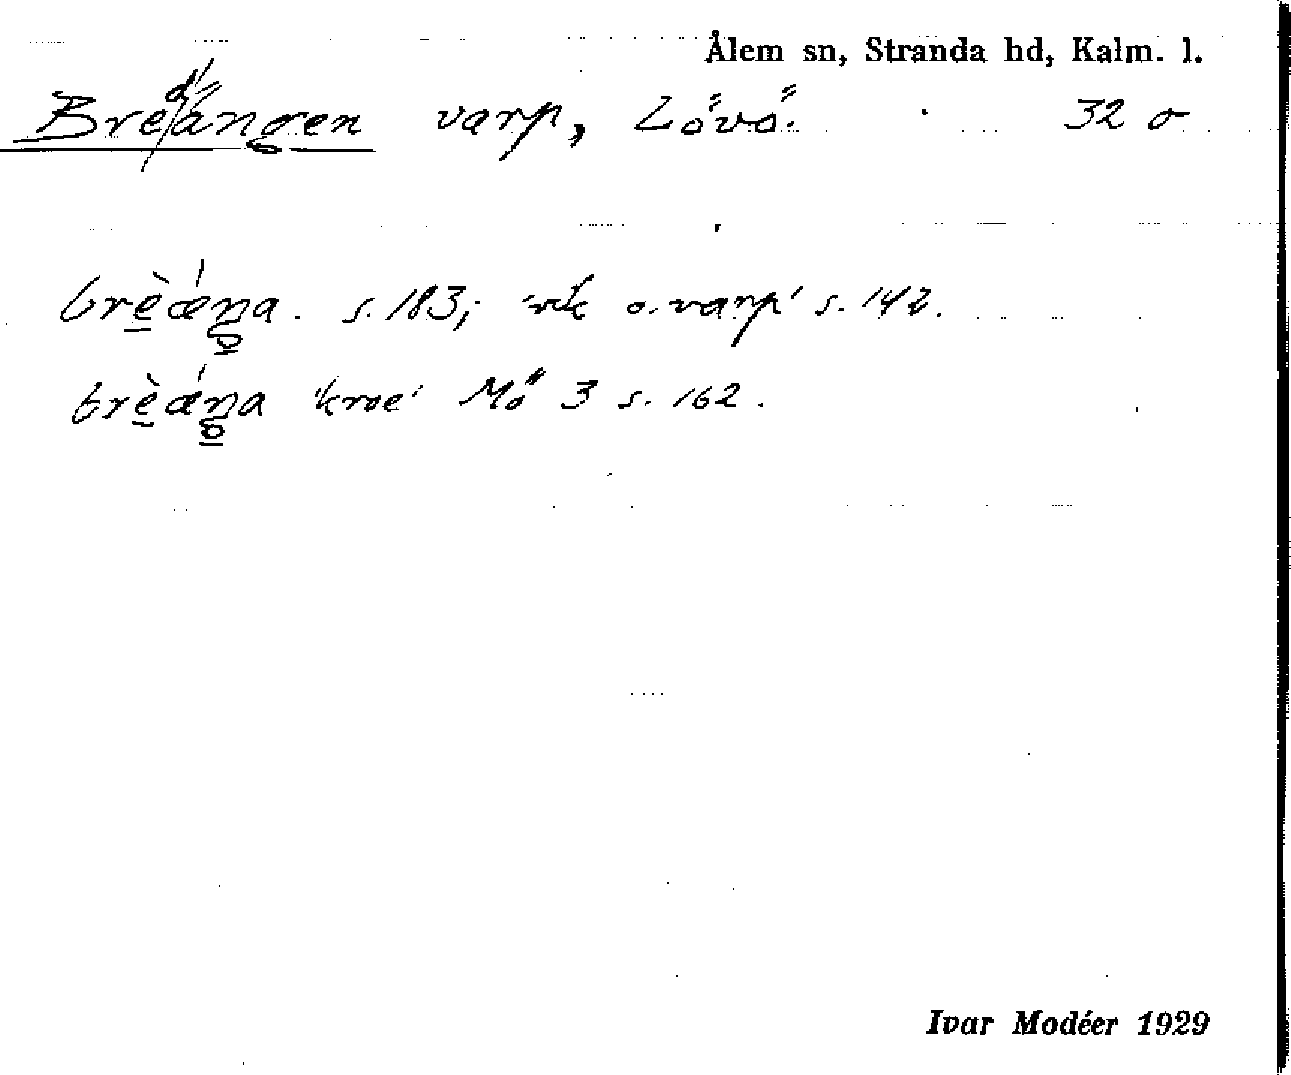 Ålem sn, Stranda hd, Kalm. l.
Bredängen varp, Lövö. 32 σ
brèǽŋa. s. 183; 'vik o. varp' s. 142.
brèǽŋa 'kroe' Mö 3 s. 162.
Ivar Modéer 1929